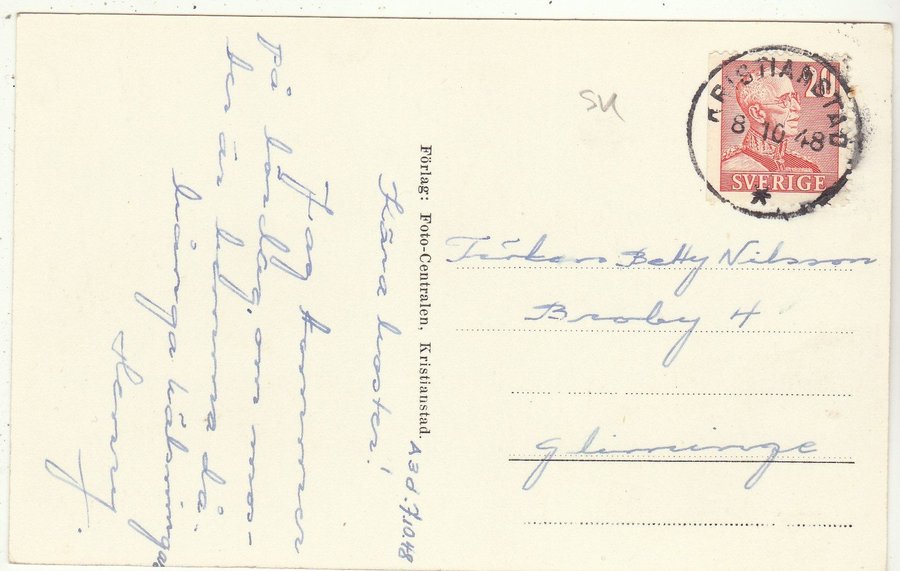 A3d. 7.10.48
Kära moster!
Jag kommer
på lördag, om mos-
ter är hemma då.
Många hälsningar
Henry.
Förlag: Foto-Centralen, Kristianstad.
SU
KRISTIANSTAD
8 10 48
20
SVERIGE
Fröken Betty Nilsson
Broby 4
Glimminge